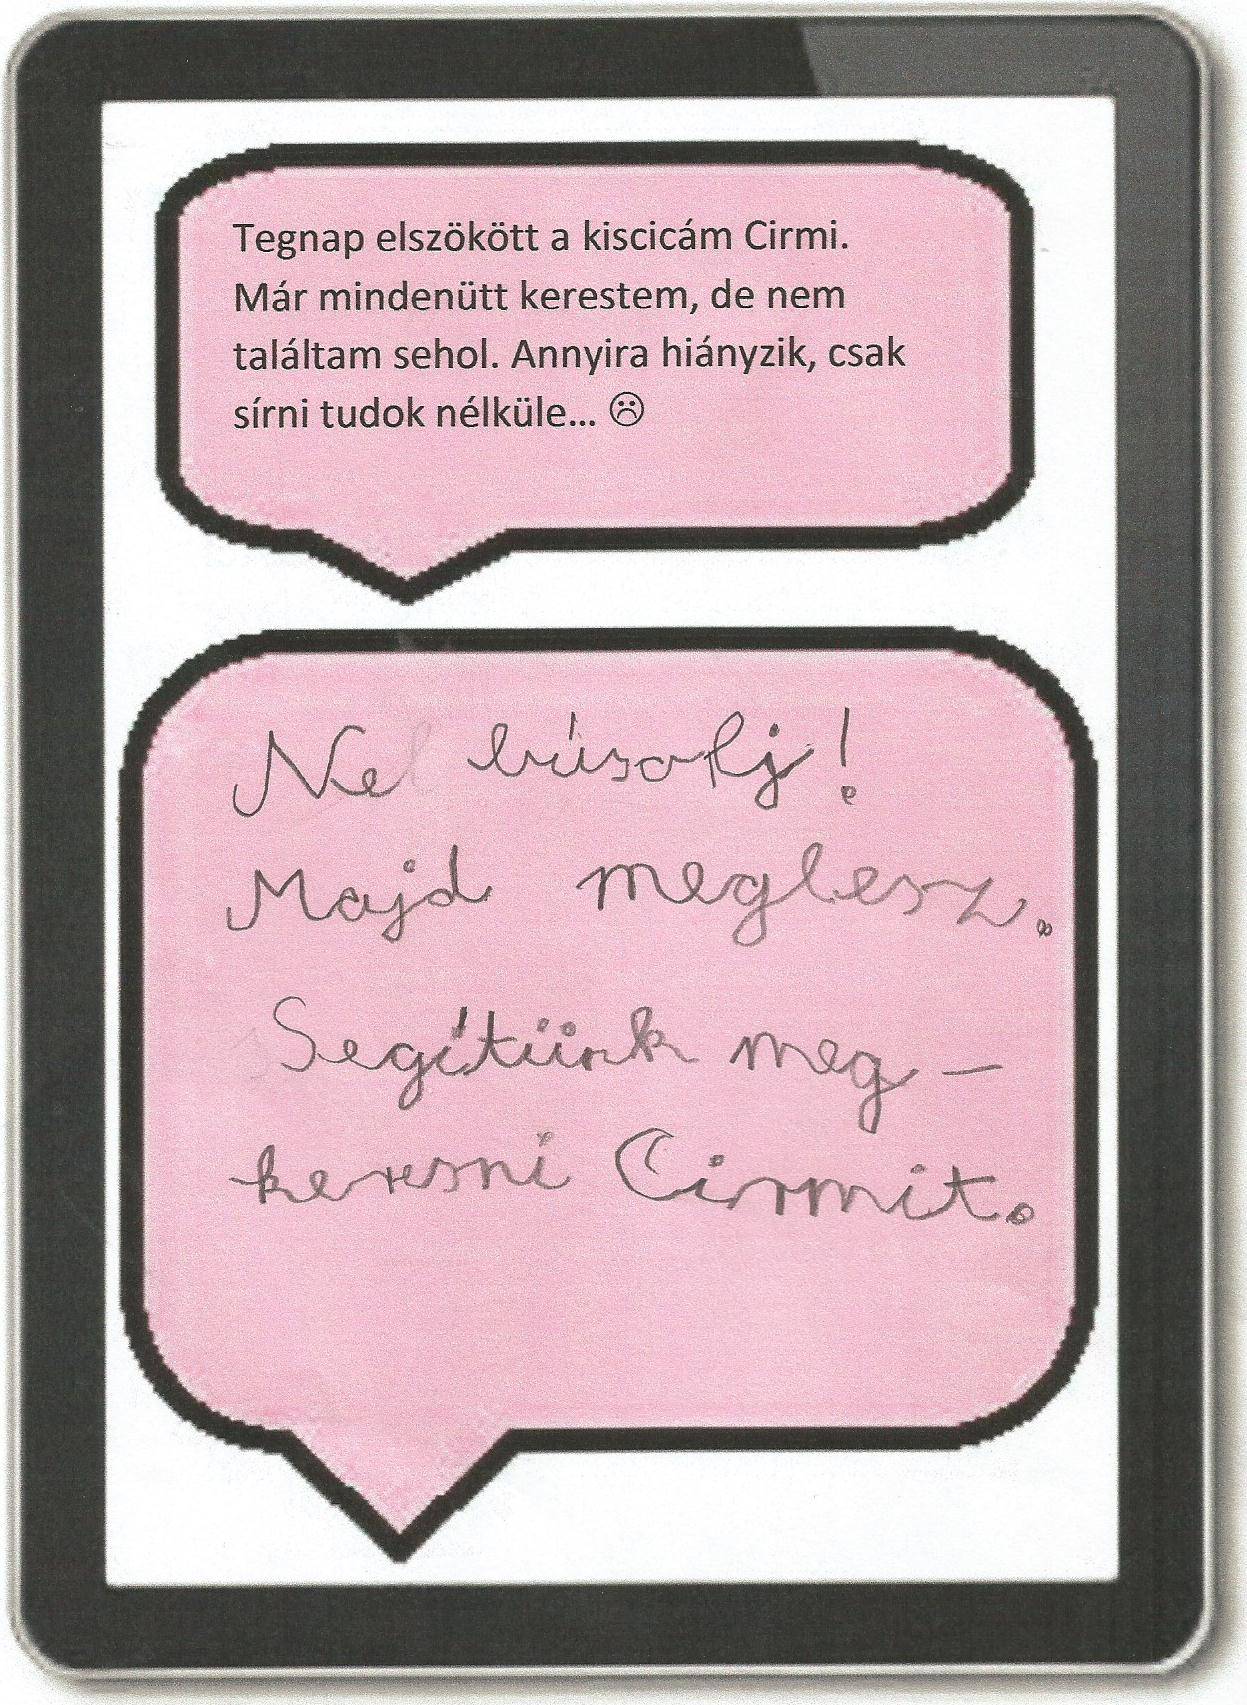 Tegnap elszökött a kiscicám Cirmi.
Már mindenütt kerestem, de nem
találtam sehol. Annyira hiányzik, csak
sírni tudok nélküle... ☹
Ne búsolj!
Majd meglesz.
Segítünk meg-
keresni Cirmit.